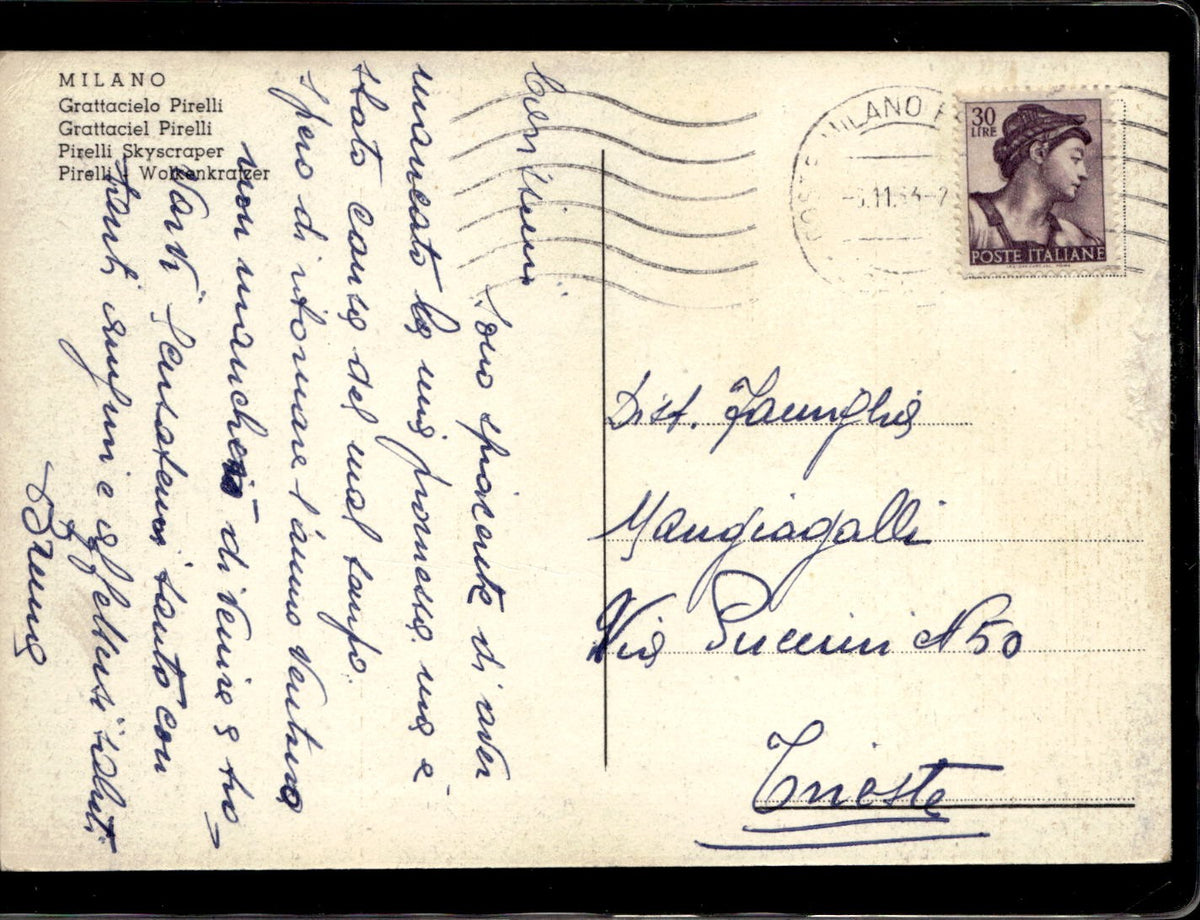 MILANO
Grattacielo Pirelli
Grattaciel Pirelli
Pirelli Skyscraper
Pirelli Wolkenkratzer
Carissimi
sono spiacente di aver
mancato la mia promessa ma è
stato causa del mal tempo.
spero di ritornare l'anno venturo
non mancherò di venire a tro-
varvi. Scusatemi tanto con
tanti auguri e affettuosi saluti
Bruna
MILANO
-11.64-
30
LIRE
POSTE ITALIANE
Dist. Famiglia
Mangiagalli
Via Puccini N 50
Trieste